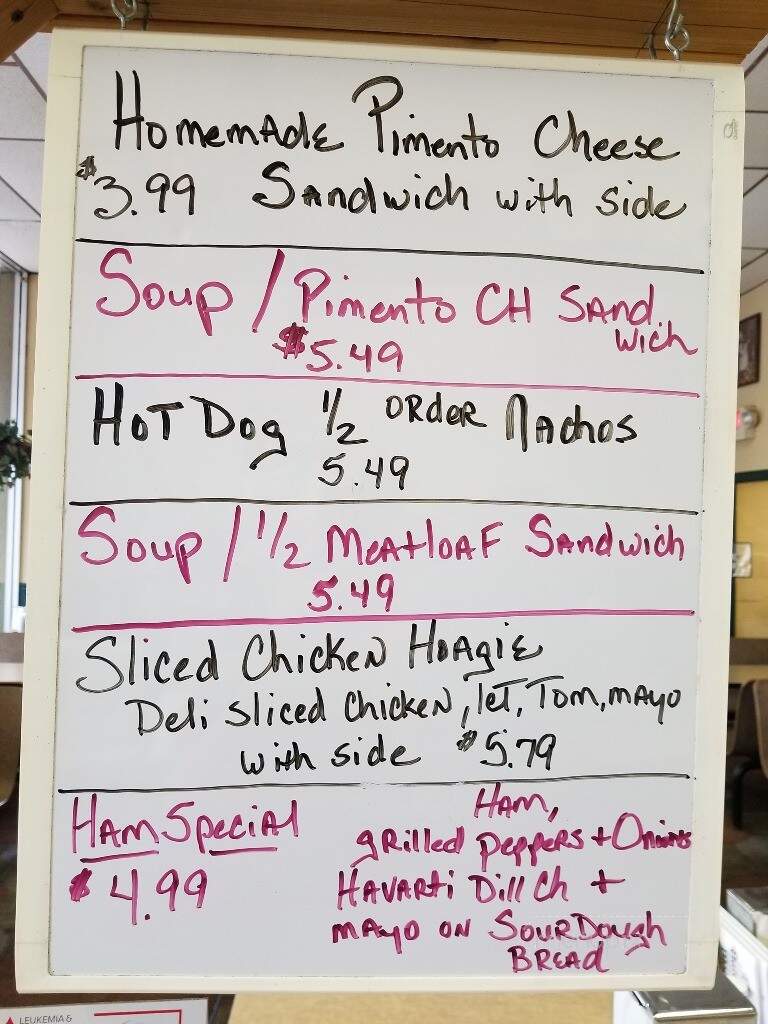 Homemade Pimento Cheese
$3.99 Sandwich with side
Soup / Pimento CH Sand.
wich
$5.49
Hot Dog 1/2 order Nachos
5.49
Soup / 1/2 Meatloaf Sandwich
5.49
Sliced Chicken Hoagie
Deli sliced chicken, let, Tom, mayo
with side $5.79
Ham Special
$4.99
Ham,
grilled peppers + Onions
Havarti Dill Ch +
mayo on SourDough
Bread
LEUKEMIA &